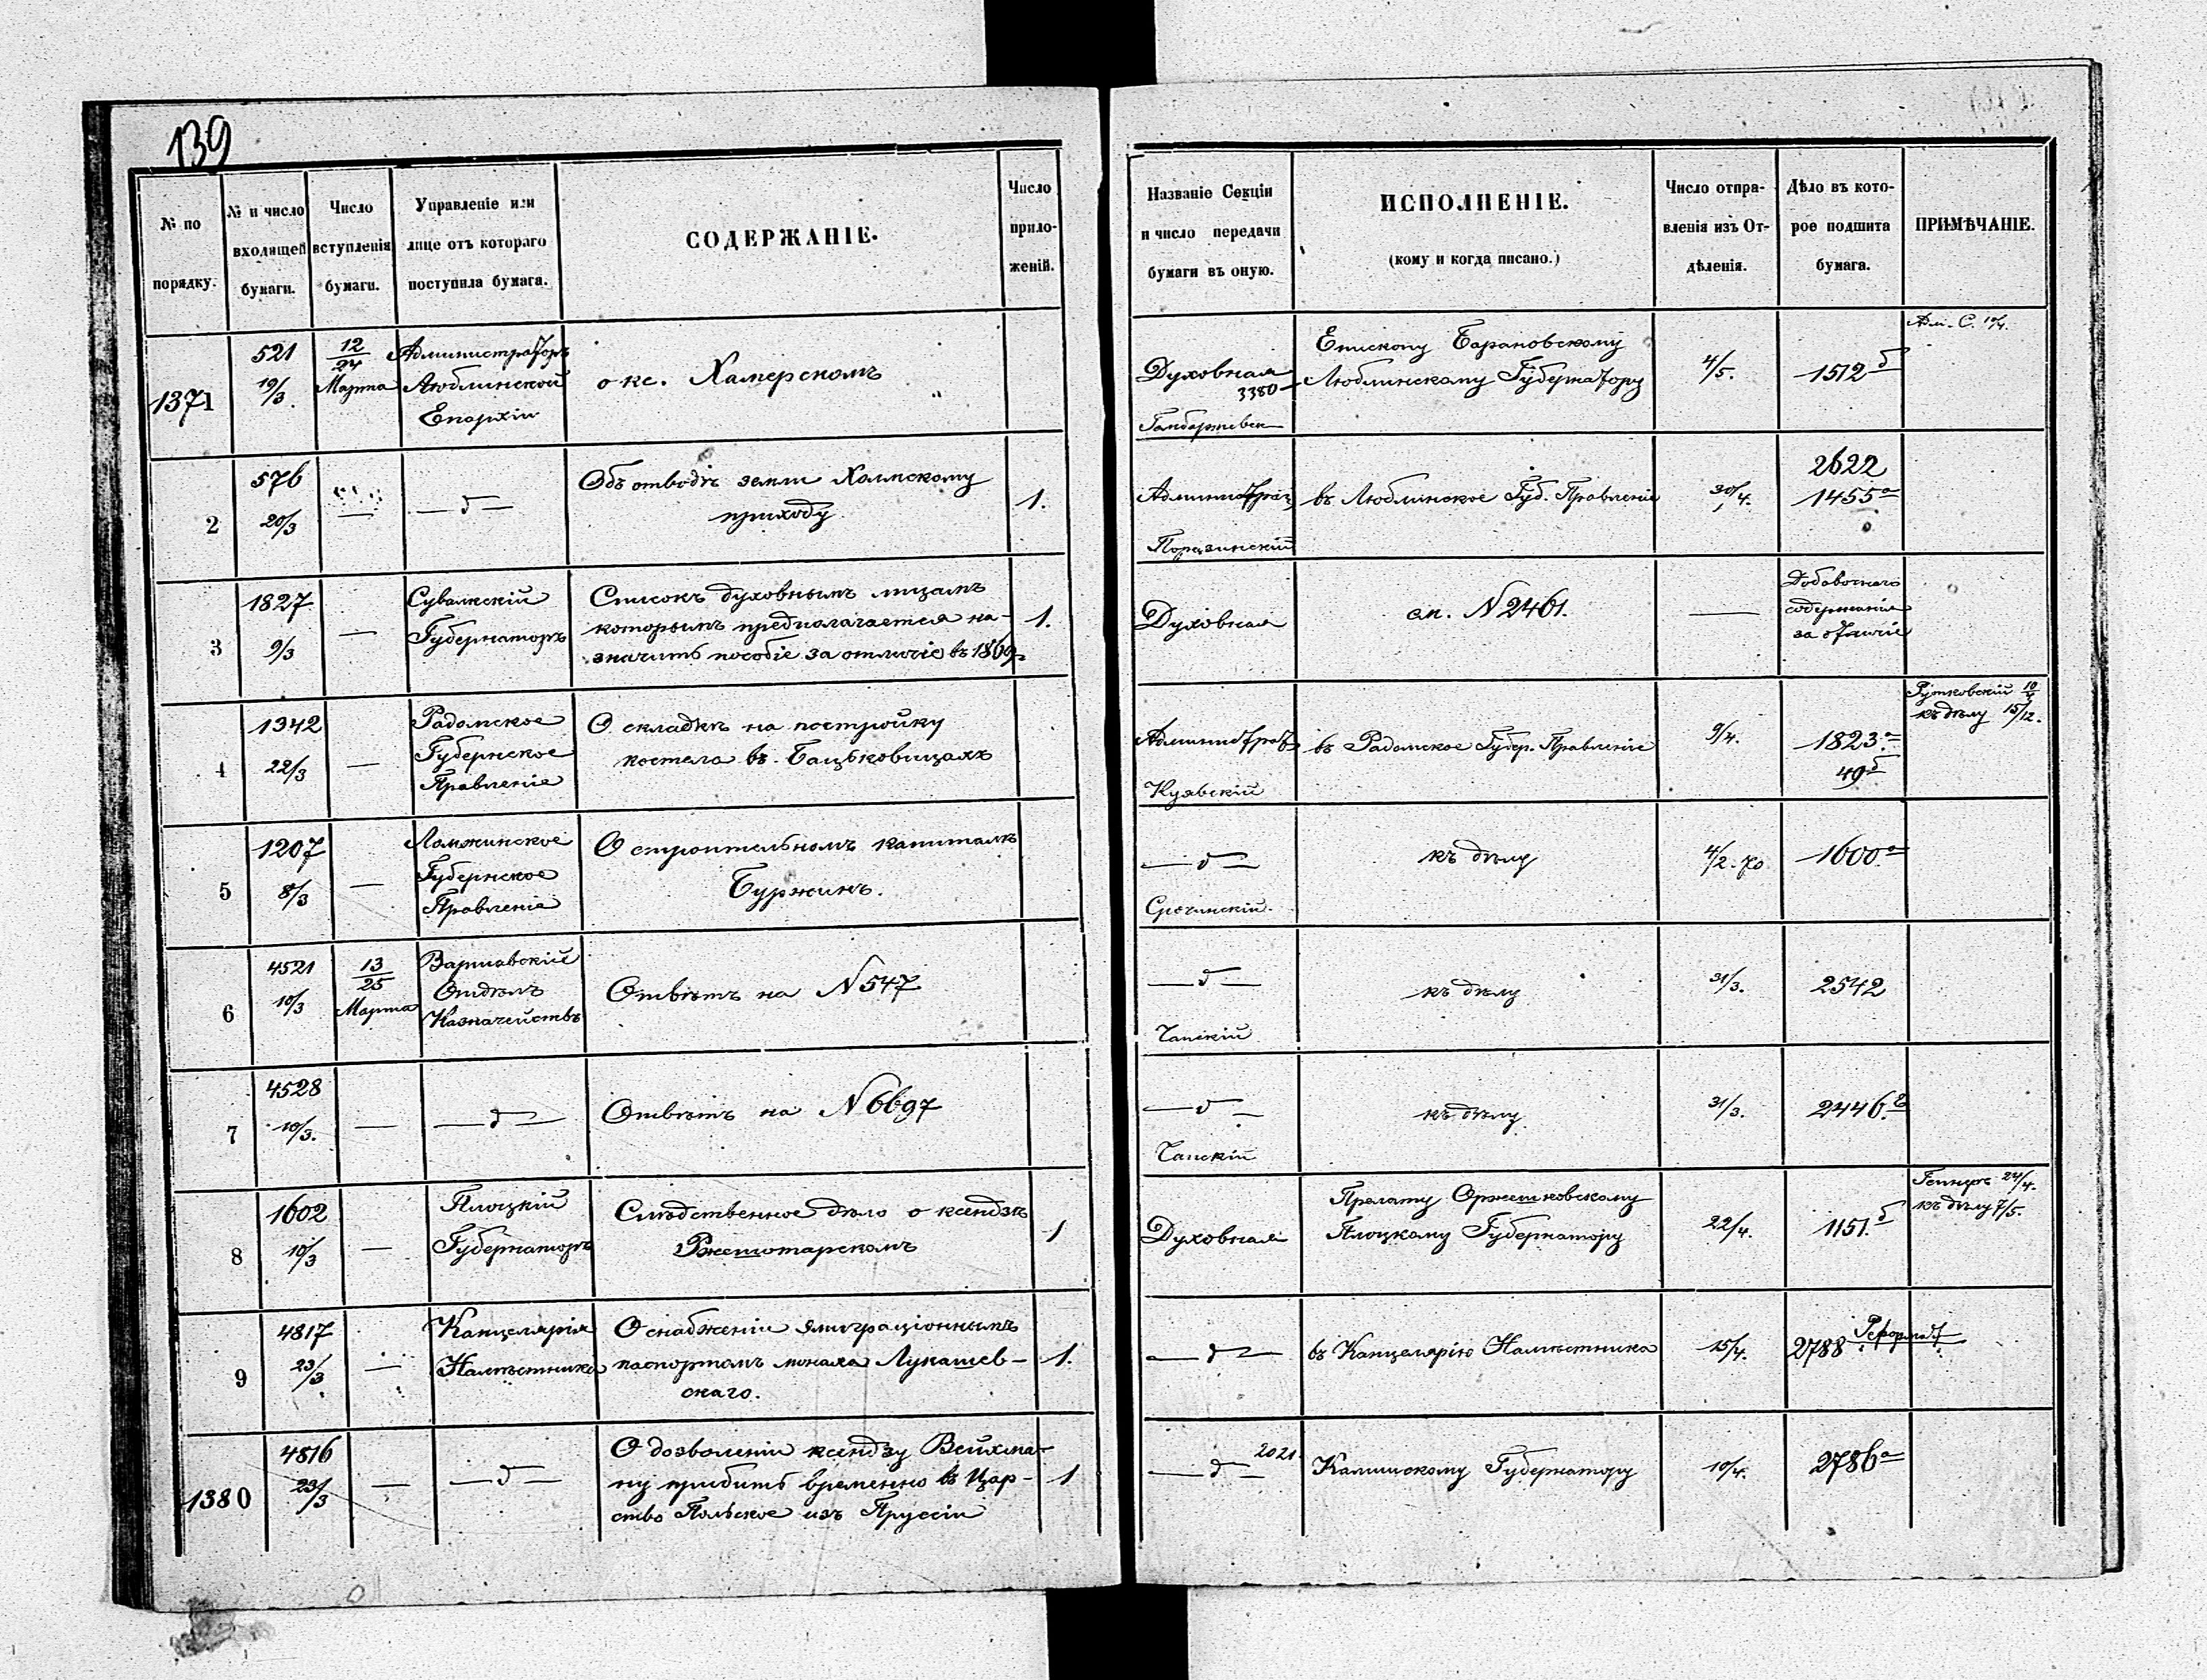 139
№ по порядку.
№ и число входящей бумаги.
Число вступленія бумаги.
Управленіе или лице отъ котораго поступила бумага.
СОДЕРЖАНІЕ.
Число приложеній.
Названіе Секціи и число передачи бумаги въ оную.
ИСПОЛНЕНІЕ.
(кому и когда писано.)
Число отправленія изъ Отдѣленія.
Дѣло въ которое подшита бумага.
ПРИМѢЧАНІЕ.
1371
521
19/3.
12/24
Марта
Администраторъ
Люблинской
Епархіи
о кс. Хамерскомъ
Духовная
3380
Епископу Барановскому
Люблинскому Губернатору
4/5.
1512 б
2
576
20/3
—
— д —
Объ отводѣ земли Холмскому
приходу
1.
Администрац
въ Люблинское Губ. Правленіе
30/4.
2622
1455 а
3
1827
9/3
—
Сувалкскій
Губернаторъ
Списокъ духовнымъ лицамъ
которымъ предполагается на-
значить пособіе за отличіе въ 1869
1.
Духовная
см. N 2461.
—
Добавочнаго
содержанія
за отличіе
4
1342
22/3
—
Радомское
Губернское
Правленіе
О складкѣ на постройку
костела въ Бацьковицахъ
Администрат
Куявскій
въ Радомское Губер. Правленіе
9/4.
1823 а
49 б
Рутковскій 10/4
къ дѣлу 15/12.
5
1207
8/3
—
Ломжинское
Губернское
Правленіе
О строительномъ капиталѣ
Буржинъ.
— д —
къ дѣлу
4/2. 70
1600 а
6
4521
10/3
13/25
Марта
Варшавскій
Отдѣлъ
Казначействъ
Отвѣтъ на N 547
— д —
Чапскій
къ дѣлу
31/3.
2542
7
4528
10/3.
—
— д —
Отвѣтъ на N 6697
— д —
Чапскій
къ дѣлу
31/3.
2446. г
8
1602
10/3
—
Плоцкій
Губернаторъ
Слѣдственное дѣло о ксендзѣ
Ржешотарскомъ
1
Духовная
Прелату Оржешковскому
Плоцкому Губернатору
22/4.
1151. б
къ дѣлу 7/5.
9
4817
23/3
—
Канцелярія
Намѣстника
О снабженіи эмиграціоннымъ
паспортомъ монаха Лукашев-
скаго.
1.
— д —
въ Канцелярію Намѣстника
15/4.
2788 Реформат
1380
4816
23/3
—
— д —
О дозволеніи ксендзу Вейхма-
ну прибыть временно въ Цар-
ство Польское изъ Пруссіи
1
— д —
2021
Калишскому Губернатору
10/4.
2786 а